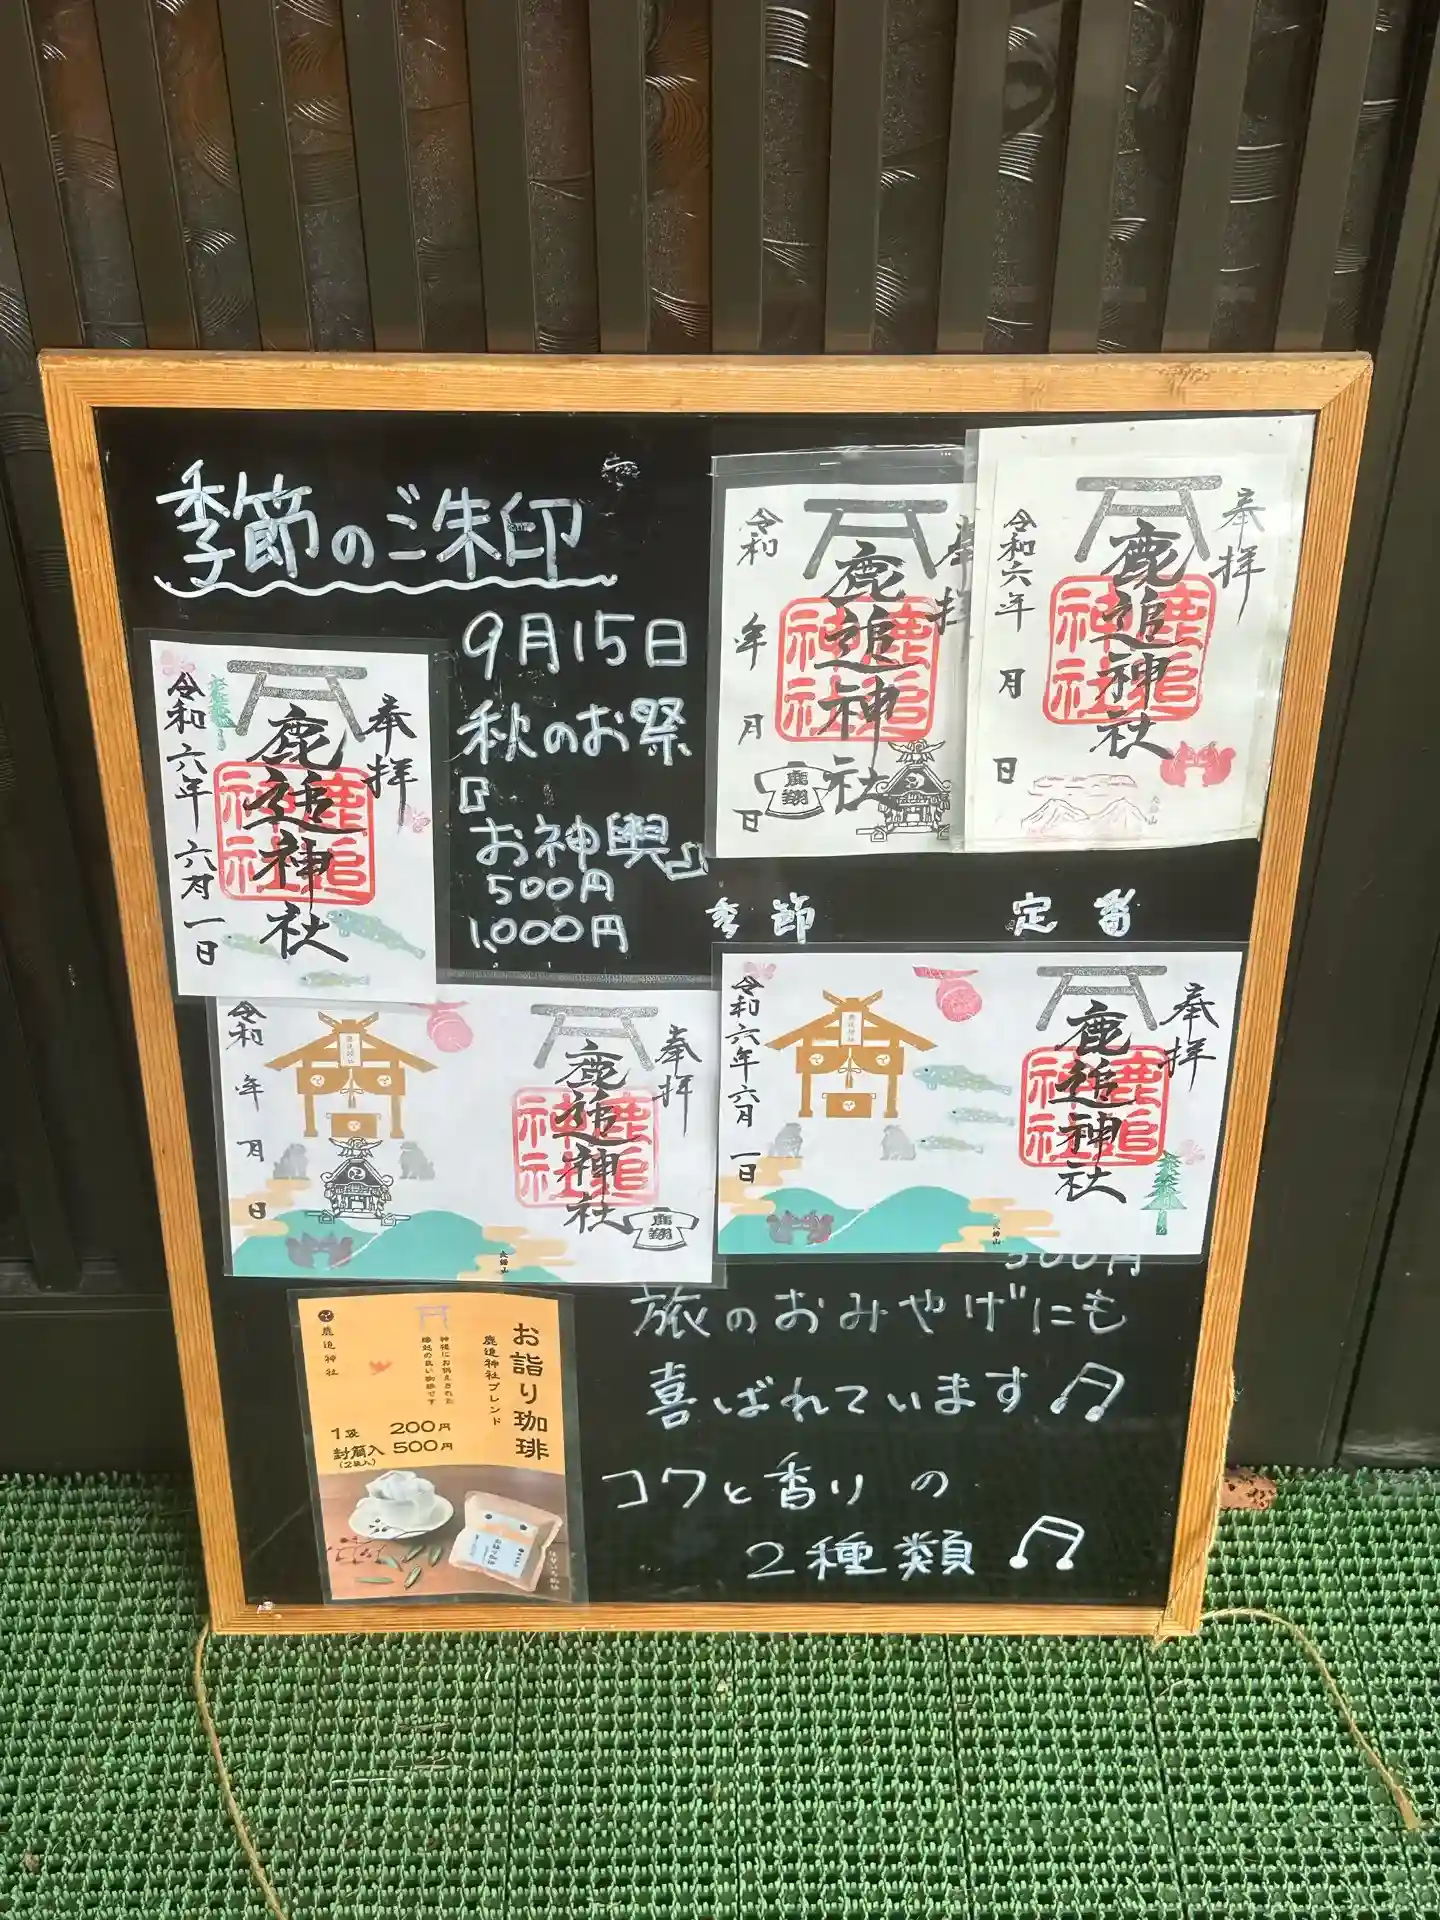 季節のご朱印
9月15日
秋のお祭
お神輿♪
500円
1,000円
奉拝
鹿追神社
令和六年
六月
一日
奉拝
鹿追神社
令和
年
月
日
鹿翔
奉拝
鹿追神社
令和六年
月
日
季節
定番
奉拝
鹿追神社
令和
年
月
日
鹿追神社
鹿翔
奉拝
鹿追神社
令和六年
六月
一日
鹿追神社
500円
旅のおみやげにも
喜ばれています♫
コクと香りの
2種類♫
お詣り珈琲
鹿追神社ブレンド
神様にお供えされた
縁起の良い珈琲です
鹿追神社
1袋 200円
封筒入 500円
(2袋入)